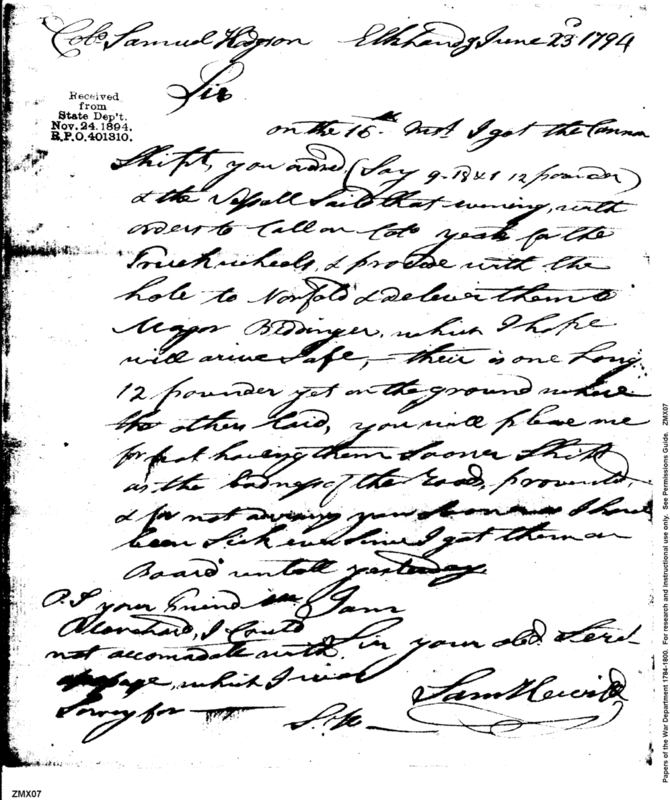 Colo. Samuel Hodgson Elklanding June 23d 1794
Sir
Received
from
State Dep't.
Nov. 24. 1894.
R.P.O. 401310.
on the 16th Inst I got the Cannon
Shipt, you ordred (Say 9-18 & 1 12 pounder)
& the Vessell Saild that evening, with
orders to Call on Colo yeats for the
Truckwheels, & procede with the
hole to Norfold & deliver them to
Magor Beddinger, which I hope
will arive Safe, their is one Long
12 pounder yet on the ground where
the others laid, you will please me
for not having them Sooner Shipt
as the badness of the roads, prevented
& for not you Sooner as I have
been Sick ever Since I got them on
Board untill yesterday
P.S your Friend Mr I am
Blanchard, I Could Sir your obd. Servt
not accomadate with
, which I was Saml Hewitt
Sorrey for S. H
Papers of the War Department 1784-1800. For research and instructional use only. See Permissions Guide. ZMX07
ZMX07